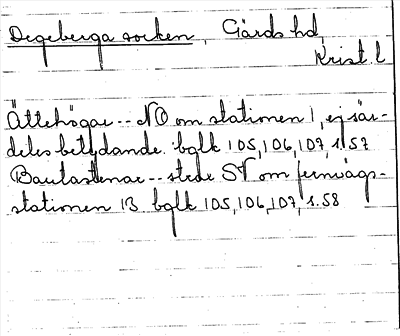 Degeberga socken, Gärds hd,
Krist. l
Ättehögar -- NO om stationen 1, ej sär-
deles betydande. bglk 105, 106, 107, s. 57
Bautastenar -- strax SV om jernvägs-
stationen 13 bglk 105, 106, 107, s. 58